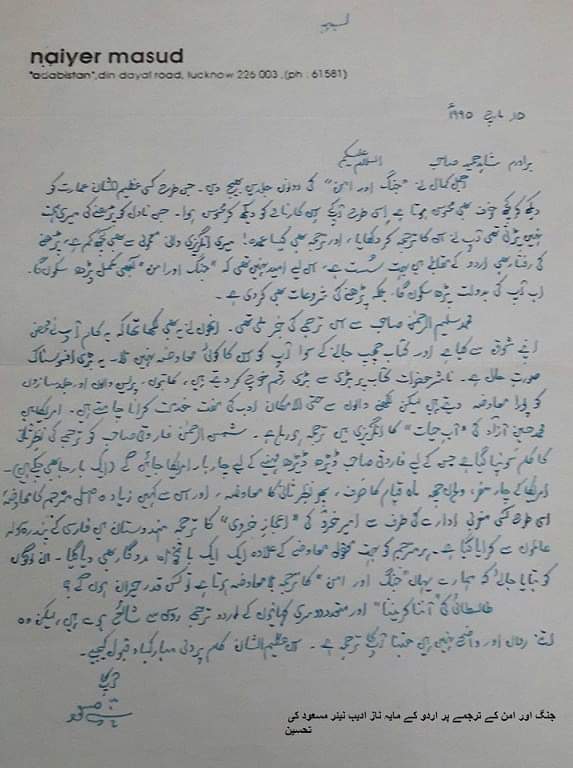 naiyer masud
"adabistan", din dayal road, lucknow 226 003 ,(ph : 61581)
۱۵ مارچ ۱۹۹۵ء
برادرم شاہد حمید صاحب السلام علیکم
اجمل کمال نے "جنگ اور امن" کی دونوں جلدیں بھیج دیں۔ جس طرح کسی عظیم الشان عمارت کو
دیکھ کر کچھ خوف بھی محسوس ہوتا ہے اسی طرح آپ کے اس کارنامے کو دیکھ کر محسوس ہوا۔ جس ناول کو پڑھنے کی میری ہمت
نہیں پڑتی تھی آپ نے اس کا ترجمہ کر دکھایا، اور ترجمہ بھی کیسا عمدہ! میری انگریزی دانی معمولی سے بھی کچھ کم ہے، پڑھنے
کی رفتار بھی اردو کے مقابلے میں بہت سست ہے، اس لیے امید نہیں تھی کہ "جنگ اور امن" کبھی مکمل پڑھ سکوں گا۔
اب آپ کی بدولت پڑھ سکوں گا، بلکہ پڑھنے کی شروعات بھی کر دی ہے۔
محمد سلیم الرحمٰن صاحب سے اس ترجمے کی خبر ملی تھی۔ انھوں نے یہ بھی لکھا تھا کہ یہ کام آپ نے محض
اپنے شوق سے کیا ہے اور کتاب چھپ جانے کے سوا آپ کو اس کا کوئی معاوضہ نہیں ملا۔ یہ بڑی افسوسناک
صورت حال ہے۔ ناشر حضرات کتاب پر بڑی سے بڑی رقم خرچ کر دیتے ہیں، کاتبوں، پریس والوں اور جلد سازوں
کو پورا معاوضہ دیتے ہیں لیکن لکھنے والوں سے حتی الامکان ادب کی مفت خدمت کرانا چاہتے ہیں۔ امریکا میں
محمد حسین آزاد کی "آب حیات" کا انگریزی میں ترجمہ ہو رہا ہے۔ شمس الرحمٰن فاروقی صاحب کو ترجمے کی نظرثانی
کا کام سونپا گیا ہے جس کے لیے فاروقی صاحب ڈیڑھ ڈیڑھ مہینے کے لیے چار بار امریکا جائیں گے (ایک بار جا بھی چکے ہیں)۔
امریکا کے چار سفر، وہاں چھ ماہ قیام کا خرچ، پھر نظرثانی کا معاوضہ، اور اس سے کہیں زیادہ اصل مترجم کا معاوضہ
اسی طرح کسی مغربی ادارے کی طرف سے امیر خسرو کی "اعجاز خسروی" کا ترجمہ ہندوستان میں فارسی کے پندرہ سولہ
عالموں سے کرایا گیا ہے۔ ہر مترجم کو بہت معقول معاوضے کے علاوہ ایک ایک مددگار بھی دیا گیا۔ ان لوگوں
کو بتایا جائے کہ ہمارے یہاں "جنگ اور امن" کے ترجمے کا معاوضہ ہوتا ہے تو کس قدر حیران ہوں گے؟
طالسطائی کی "آننا کرینینا" اور متعدد دوسری کہانیوں کے اردو ترجمے روس سے شائع ہوئے ہیں، لیکن وہ
اتنے رواں اور واضح نہیں ہیں جتنا آپ کا ترجمہ ہے۔ اس عظیم الشان کام پر دلی مبارکباد قبول کیجیے۔
آپ کا
نیر مسعود
جنگ اور امن کے ترجمے پر اردو کے مایہ ناز ادیب نیئر مسعود کی
تحسین